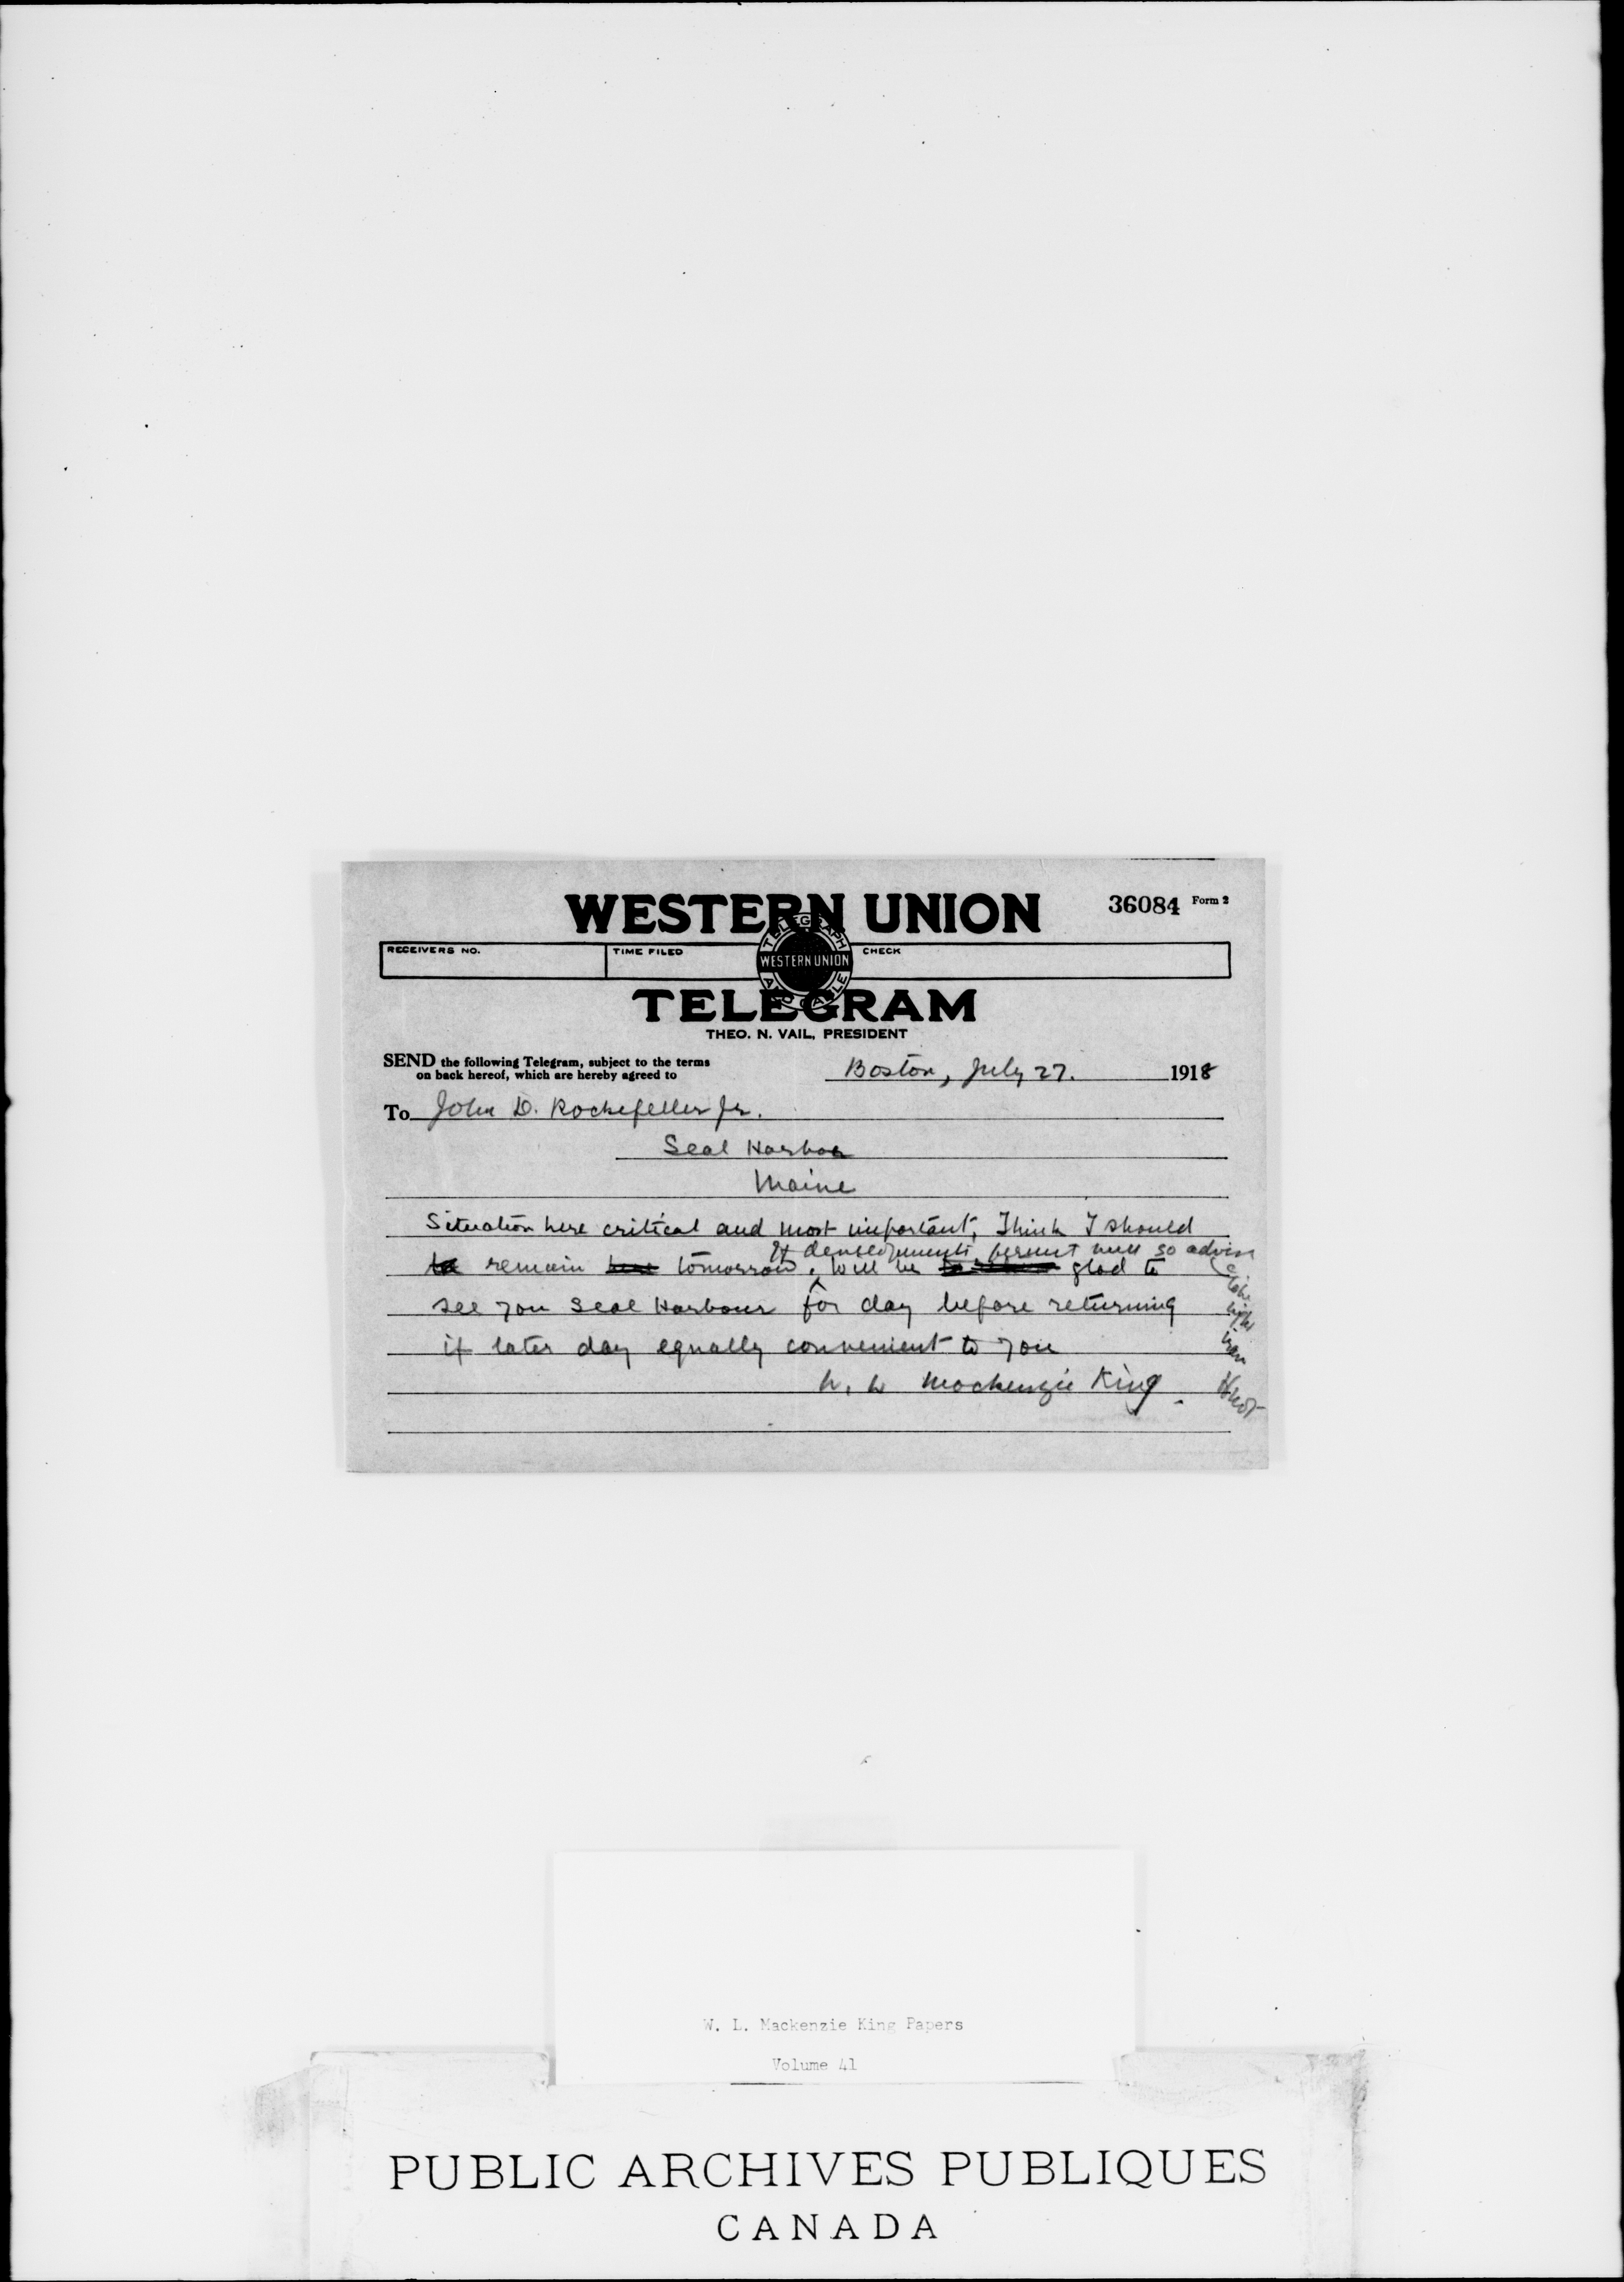 WESTERN UNION
36084 Form 2
RECEIVERS NO.
TIME FILED
CHECK
TELEGRAPH AND CABLE
WESTERN UNION
TELEGRAM
THEO. N. VAIL, PRESIDENT
SEND the following Telegram, subject to the terms
on back hereof, which are hereby agreed to
Boston, July 27. 1918
To John D. Rockefeller Jr.
Seal Harbor
Maine
Situation here critical and most important, Think I should
If developments permit will so advise
remain here tomorrow. Will be glad to
see you Seal Harbour for day before returning
if later day equally convenient to you
W. L Mackenzie King.
W. L. Mackenzie King Papers
Volume 41
PUBLIC ARCHIVES PUBLIQUES
CANADA